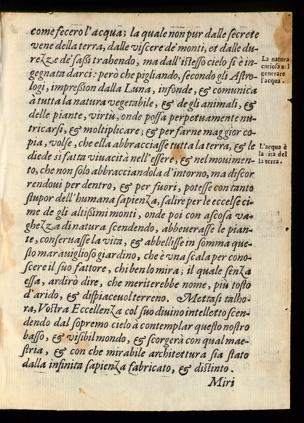 come fecero l'acqua: la quale non pur dalle secrete
vene della terra, dalle viscere de' monti, et dalle du-
rezze de' sassi trahendo, ma dall'istesso cielo si è in
gegnata darci: però che pigliando, secondo gli Astro
logi, impression dalla Luna, infonde, & comunica
à tutta la natura vegetabile, & de gli animali, &
delle piante, virtù, onde possa perpetuamente nu-
tricarsi, & moltiplicare; & per farne maggior co-
pia, volse, che ella abbracciasse tutta la terra, & le
diede sì fatta vivacità nell'essere, & nel movimen-
to, che non solo abbracciandola d'intorno, ma discor
rendovi per dentro, & per fuori, potesse con tanto
stupor dell'humana sapienza, salire per le eccelse ci-
me de gli altissimi monti, onde poi con ascosa va-
ghezza di natura scendendo, abbeverasse le pian-
te, conservasse la vita, & abbellisse in somma que-
sto maraviglioso giardino, che è una scala per cono-
scere il suo fattore, chi ben lo mira; il quale senza
essa, ardirò dire, che meriterebbe nome, più tosto
d'arido, & dispiacevol terreno. Mettasi talho-
ra, Vostra Eccellenza col suo divino intelletto scen-
dendo dal sopremo cielo à contemplar questo nostro
basso, & visibil mondo, & scorgerà con qual mae-
stria, & con che mirabile architettura sia stato
dalla infinita sapienza fabricato, & distinto.
Miri
La natura
curiosa nel
generare
l'acqua.
L'acqua è
la vita del
la terra.